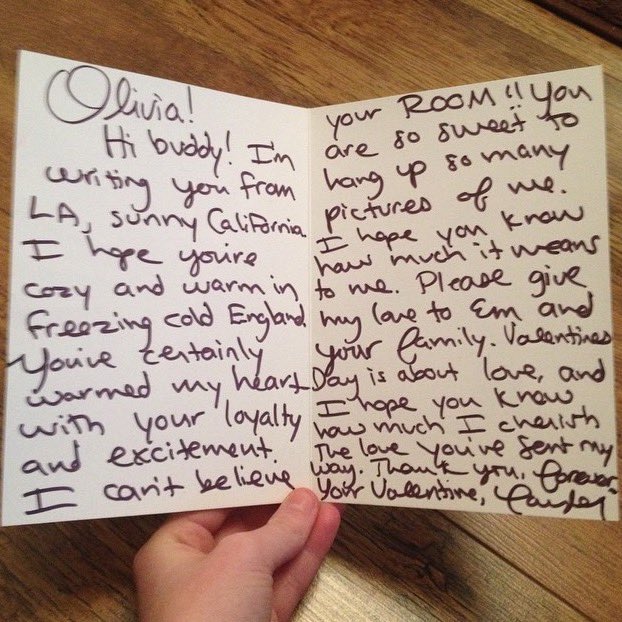 Olivia!
Hi buddy! I'm
writing you from
LA, sunny California.
I hope you're
cozy and warm in
freezing cold England.
You've certainly
warmed my heart
with your loyalty
and excitement.
I can't believe
your ROOM!! You
are so sweet to
hang up so many
pictures of me.
I hope you know
how much it means
to me. Please give
my love to Em and
your family. Valentines
Day is about love, and
I hope you know
how much I cherish
the love you've sent my
way. Thank you. Forever
Your Valentine,